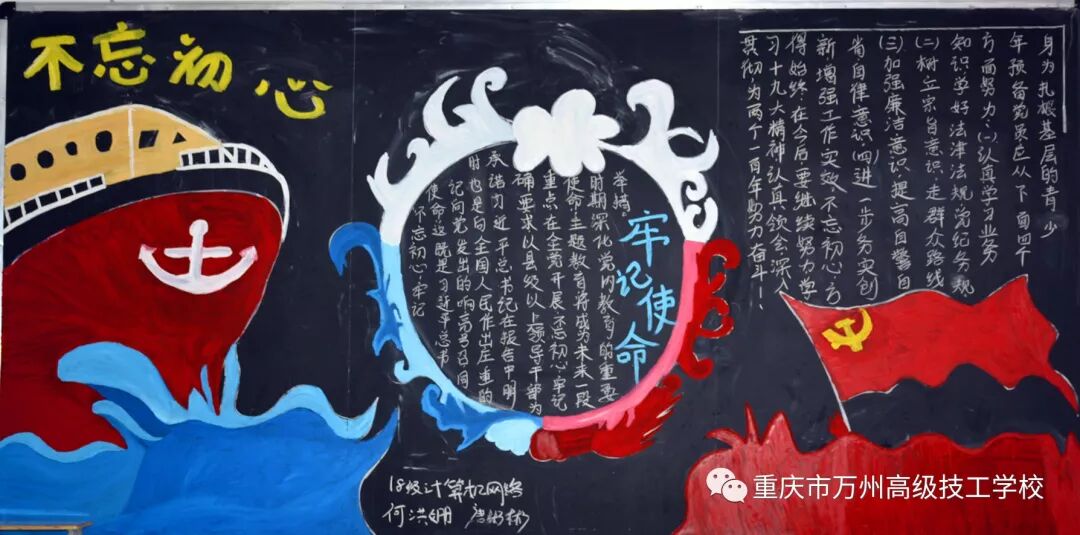 不忘初心
牢记使命
“不忘初心、牢记
使命”这既是习近平总书
记向党发出的响亮号召,同
时也是向全国人民作出庄重的
承诺习近平总书记在报告中明
确要求以县级以上领导干部为
重点,在全党开展“不忘初心、牢记
使命”主题教育将成为未来一段
时期深化党内教育的重要
举措。
身为扎根基层的青少
年预备党员应从下面四个
方面努力:(一)认真学习业务
知识学好法津法规党纪务规
(二)树立宗旨意识,走群众路线
(三)加强廉洁意识,提高自警自
省自律意识(四)进一步务实创
新增强工作实效,不忘初心,方
得始终.在今后要继续努力学
习十九大精神认真领会深入
贯彻为两个一百年努力奋斗!
18级计算机网络
何洪
重庆市万州高级技工学校